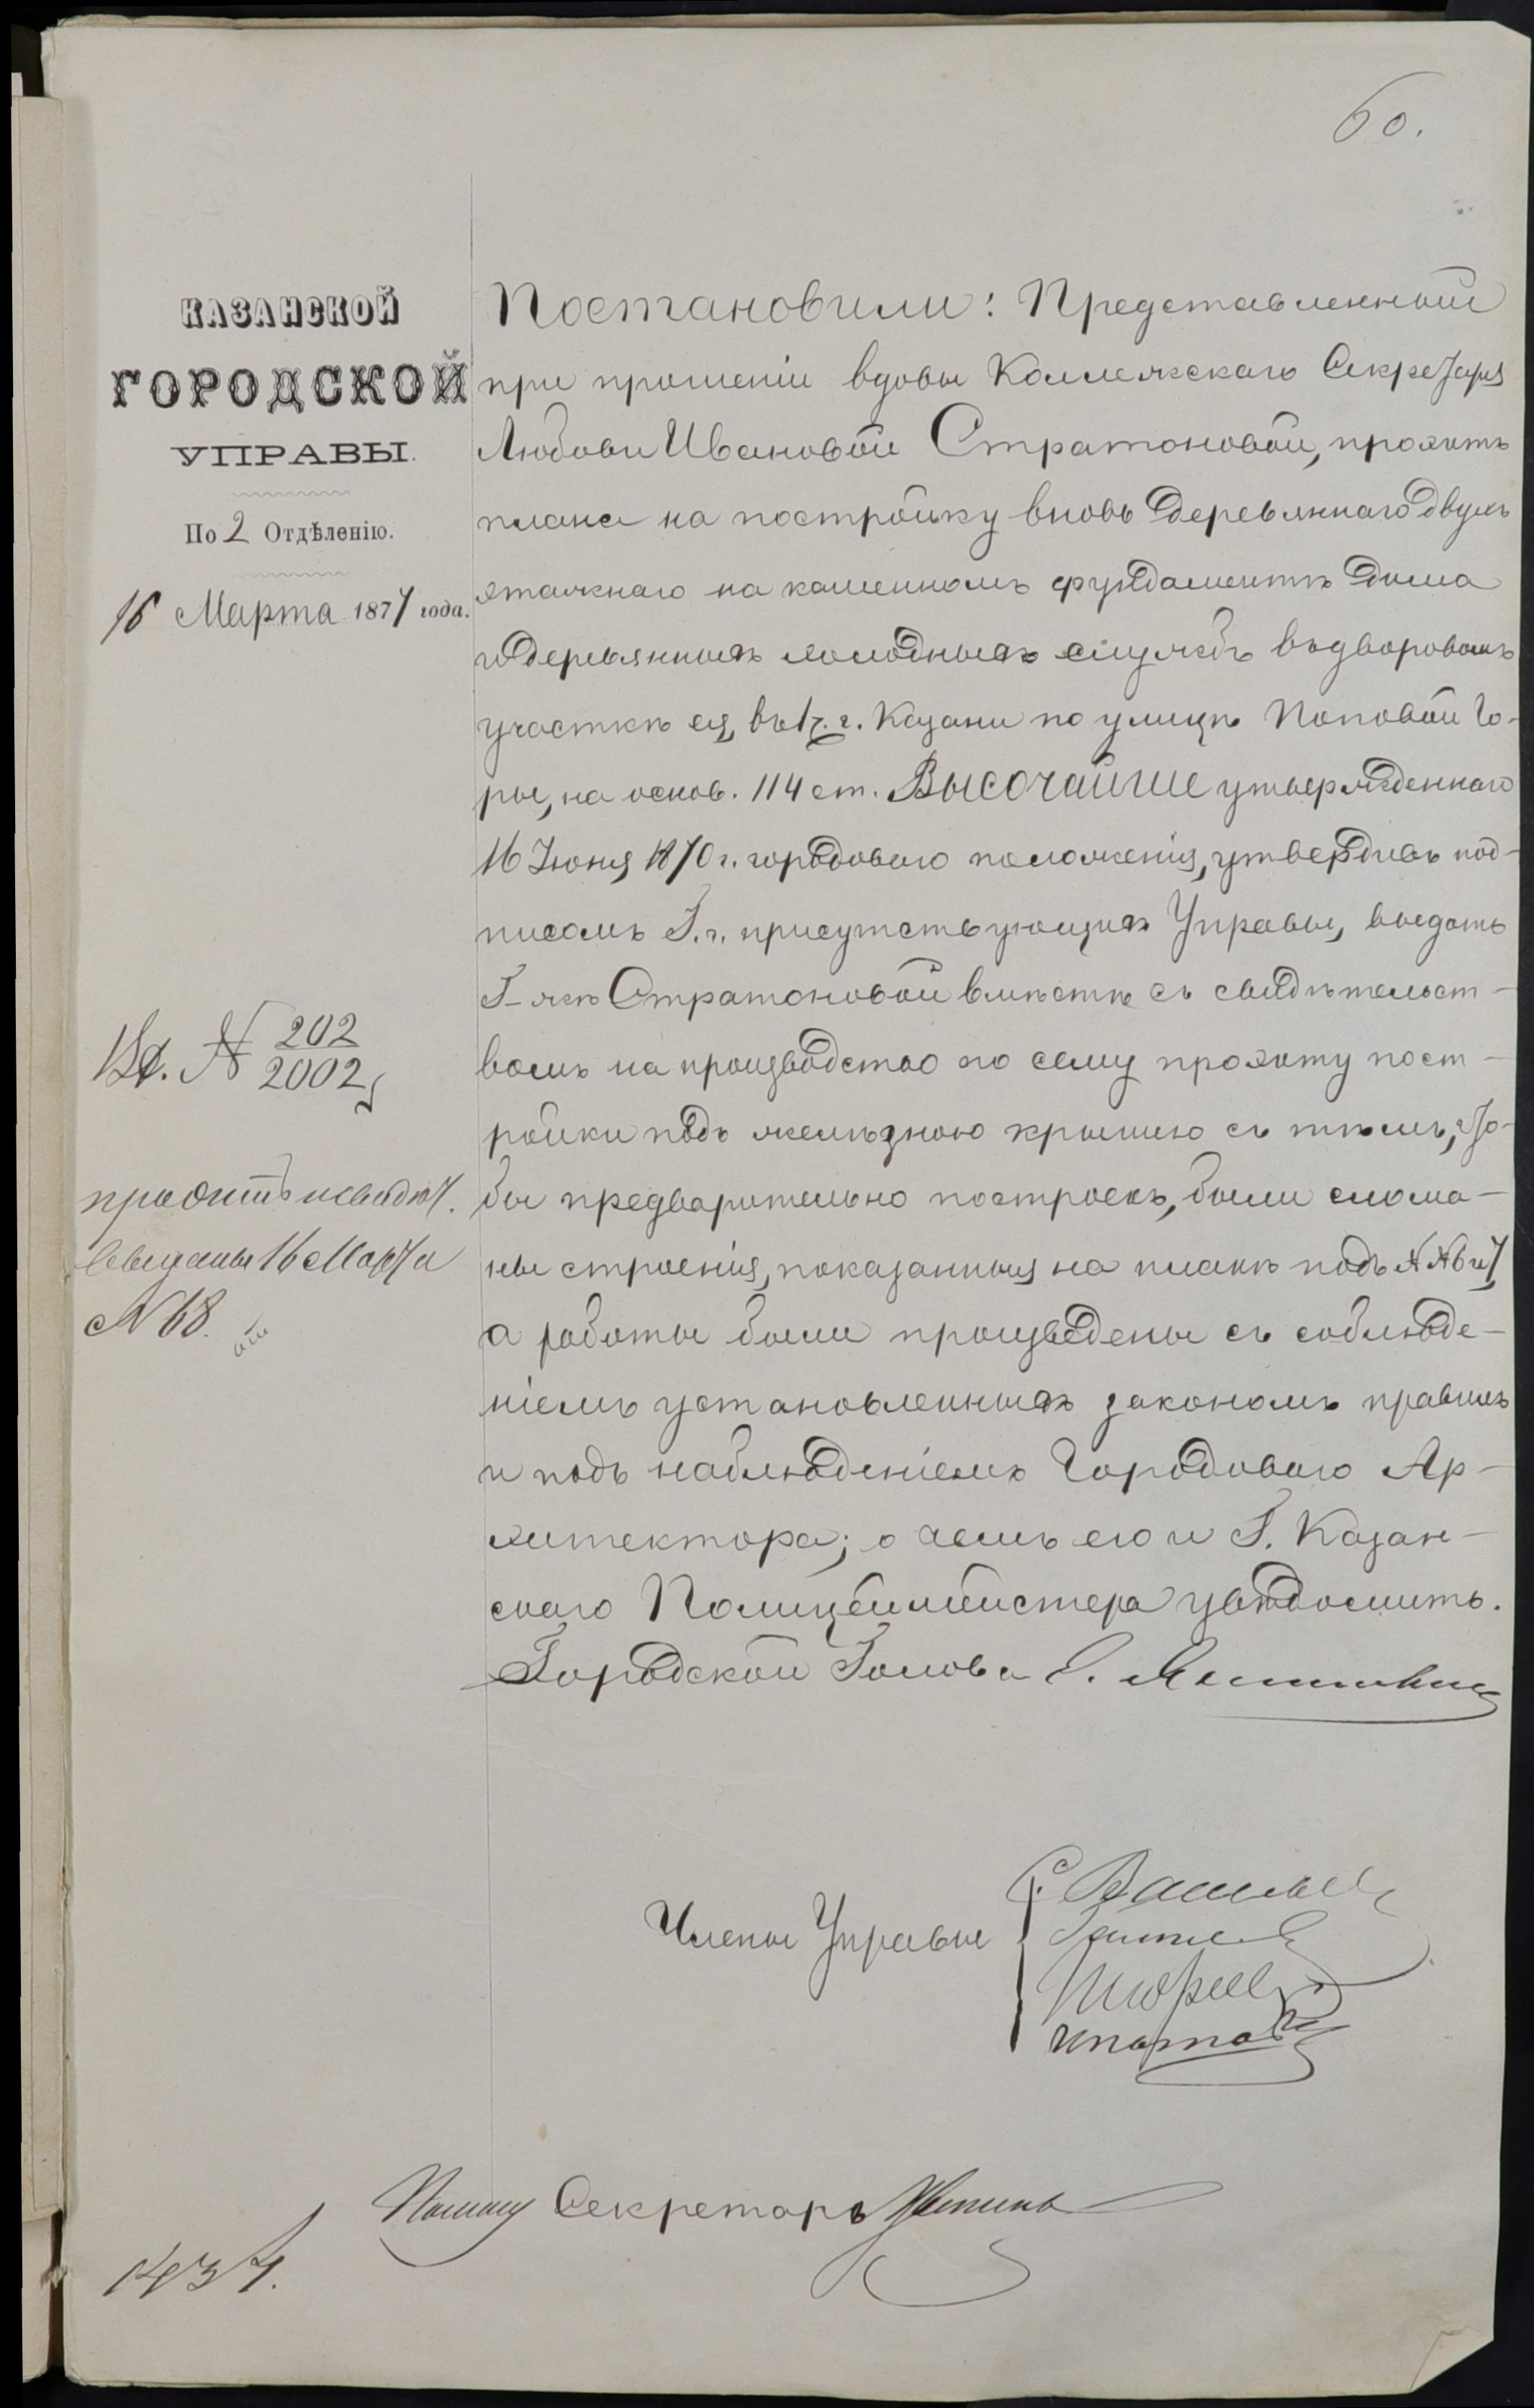 60.
КАЗАНСКОЙ
ГОРОДСКОЙ
УПРАВЫ.
По 2 Отдѣленію.
16 Марта 1877 года.
Вх. № 202
2002
проэктъ и свидѣт.
выданы 16 Марта
№ 68.
Постановили: Представленный
при прошеніи вдовы Коллежскаго Секретаря
Любови Ивановой Стратоновой, проэктъ
плана на постройку вновь деревяннаго двухъ
этажнаго на каменномъ фундаментѣ дома
и деревянныхъ холодныхъ службъ въ дворовомъ
участкѣ ея, въ 1 ч. г. Казани по улицѣ Поповой Го-
ры, на основ. 114 ст. ВЫСОЧАЙШЕ утвержденнаго
16 Іюня 1870 г. городоваго положенія, утвердивъ под-
писомъ Г.г. присутствующихъ Управы, выдать
Г-жѣ Стратоновой вмѣстѣ съ свидѣтельст-
вомъ на производство по сему проэкту пост-
ройки подъ желѣзною крышею съ тѣмъ, что-
бы предварительно построекъ, были слома-
ны строенія, показанныя на планѣ подъ №№ 6 и 7,
а работы были произведены съ соблюде-
ніемъ установленныхъ закономъ правилъ
и подъ наблюденіемъ Городоваго Ар-
хитектора; о чемъ его и Г. Казан-
скаго Полицеймейстера увѣдомить.
Городской Голова Е.
Члены Управы
С. Васильев
Юрьев
Ипатов
Помощ Секретарь
1437.